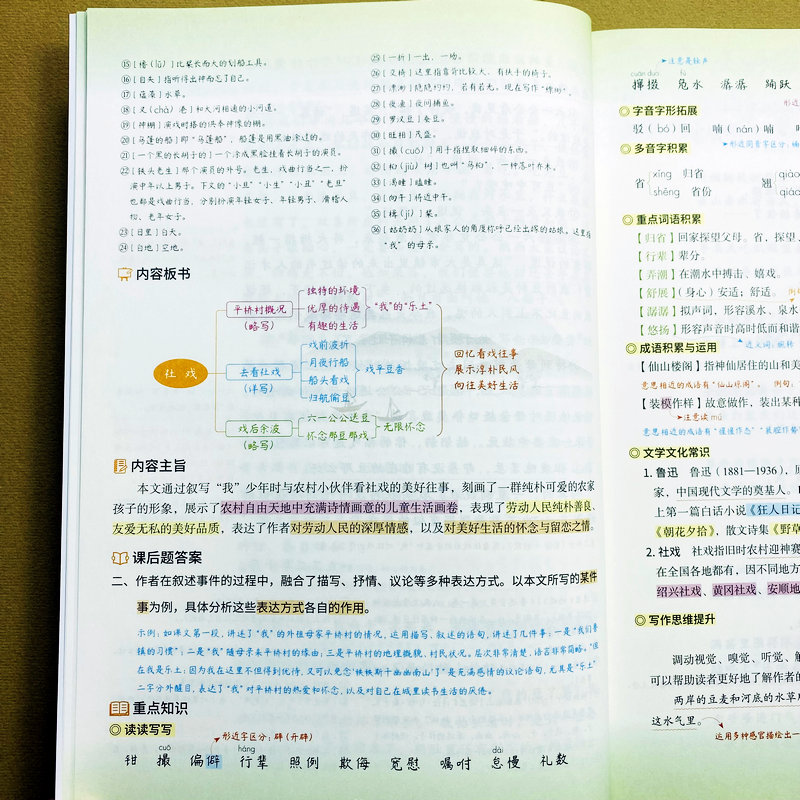 ⑮[橹(lǔ)]比桨长而大的划船工具。
⑯[自失]指听得出神而忘了自己。
⑰[蕴藻]水草。
⑱[叉(chà)港]和大河相通的小河道。
⑲[神棚]演戏时搭的供奉神像的棚。
⑳[乌篷的船]即“乌篷船”，船篷是用黑油涂过的。
㉑[一个黑的长胡子的]一个涂成黑脸挂着长胡子的演员。
㉒[铁头老生]那个演员的外号。老生，戏曲行当之一，扮
演中年以上男子。下文的“小旦”“小生”“小丑”“老旦”
也都是戏曲行当，分别扮演年轻女子、年轻男子、滑稽人
物、老年女子。
㉓[日里]白天。
㉔[白地]空地。
㉕[一折]一出、一场。
㉖[交椅]这里指靠背比较大、有扶手的椅子。
㉗[漂渺]隐隐约约，若有若无。现在写作“缥缈”。
㉘[夜渔]夜间捕鱼。
㉙[罗汉豆]蚕豆。
㉚[旺相]茂盛。
㉛[撮(cuō)]用于指捏取细碎的东西。
㉜[桕(jiù)树]也叫“乌桕”，一种落叶乔木。
㉝[渴睡]瞌睡。
㉞[向午]将近中午。
㉟[楫(jí)]桨。
㊱[姑奶奶]从娘家人的角度称呼已经出嫁的姑娘。这里指
“我”的母亲。
内容板书
社戏
平桥村概况
(略写)
独特的环境
优厚的待遇
有趣的生活
“我”的“乐土”
去看社戏
(详写)
戏前波折
月夜行船
船头看戏
归航偷豆
戏平豆香
戏后余波
(略写)
六一公公送豆
怀念那豆那戏
无限怀念
回忆看戏往事
展示淳朴民风
向往美好生活
内容主旨
本文通过叙写“我”少年时与农村小伙伴看社戏的美好往事，刻画了一群纯朴可爱的农家
孩子的形象，展示了农村自由天地中充满诗情画意的儿童生活画卷，表现了劳动人民纯朴善良、
友爱无私的美好品质，表达了作者对劳动人民的深厚情感，以及对美好生活的怀念与留恋之情。
课后题答案
二、作者在叙述事件的过程中，融合了描写、抒情、议论等多种表达方式。以本文所写的某件
事为例，具体分析这些表达方式各自的作用。
示例：如课文第一段，讲述了“我”的外祖母家平桥村的情况，运用描写、叙述的语句，讲述了几件事：一是“我们鲁
镇的习惯”；二是“我”随母亲来平桥村的缘由；三是平桥村的地理概貌、村民状况。层次非常清楚，语言非常简略。“但
在我是乐土：因为我在这里不但得到优待，又可以免念‘秩秩斯干幽幽南山’了”是充满感情的议论语句，尤其是“乐土”
二字分外醒目，表达了“我”对平桥村的热爱和怀念，以及对自己在城里读书生活的厌倦。
重点知识
◎读读写写
形近字区分：辟(开辟)
cuō háng dài
钳 撮 偏僻 行辈 照例 欺侮 宽慰 嘱咐 怠慢 礼数
注意是轻声
cuān duo fú
撺掇 凫水 潺潺 踊跃
◎字音字形拓展
驳(bó)回 喃(nán)喃
◎多音字积累
形近同音字区分：
省
xǐng 归省
shěng 省份
翘
◎重点词语积累
【归省】回家探望父母。省，探望、
【行辈】辈分。
【弄潮】在潮水中搏击、嬉戏。
【舒展】(身心)安适；舒适。
【潺潺】拟声词，形容溪水、泉水
【悠扬】形容声音时高时低而和谐
近义词：婉转
◎成语积累与运用
【仙山楼阁】指神仙居住的山和美
意思相近的成语有“仙山琼阁”。 例句：
【装模作样】故意做作，装出某种
注意读mú
意思相近的成语有“惺惺作态”“装腔作势
◎文学文化常识
1. 鲁迅 鲁迅(1881—1936)，原
家，中国现代文学的奠基人。
上第一篇白话小说《狂人日记
《朝花夕拾》，散文诗集《野草
2. 社戏 社戏指旧时农村迎神赛
在全国各地都有，因不同地方
绍兴社戏、黄冈社戏、安顺地
◎写作思维提升
调动视觉、嗅觉、听觉、触
可以帮助读者更好地了解作者的
两岸的豆麦和河底的水草所
这水气里。
运用多种感官描绘出一